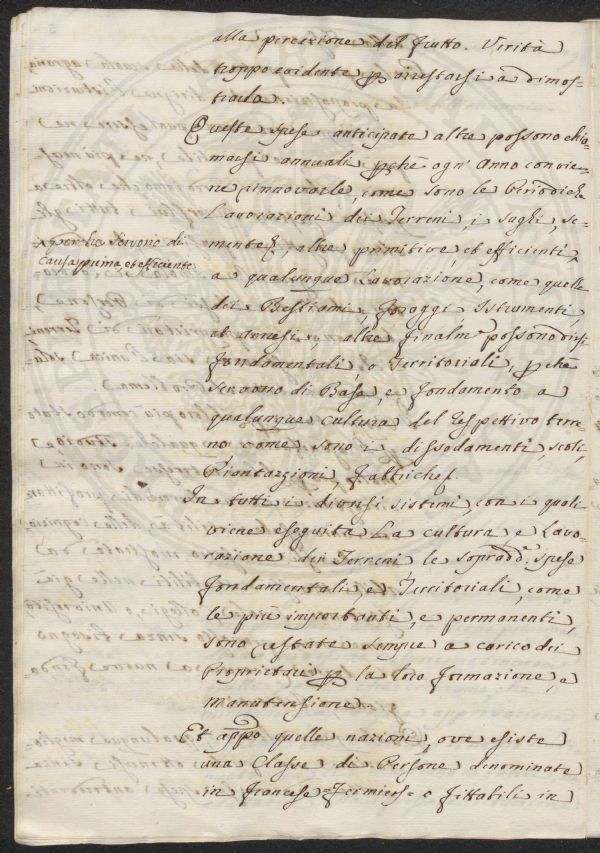 alla percezione del frutto. Verità
troppo evidente p arrestarsi a dimos=
trarla
Queste spese anticipate altre possono chia=
marsi annuali, pchè ogn' Anno convie=
ne rinnovarle, come sono le Periodiche
Lavorazioni dei Terreni, i sughi, se=
menta &, altre primitive, et efficienti
e perchè servono di
causa prima et efficiente
a qualunque Lavorazione, come quelle
dei Bestiami, Foraggi Istrumenti,
et arnesi, altre finalm.e possono dirsi
fondamentali, o Territoriali, pchè
servono di Base, e fondamento a
qualunque cultura del respettivo terre=
no come sono i dissodamenti, scoli,
Piantazioni, Fabbriche &.
In tutti i diversi sistemi, con i quali
viene eseguita La cultura, e Lavo=
razione dei Terreni le sopradd.e spese
fondamentali e Territoriali, come
le più importanti, e permanenti,
sono restate sempre a carico dei
Proprietari p la loro formazione, e
manutensione
Et appo quelle nazioni, ove esiste
una Classe di Persone denominate
in francese = Fermiers = o fittabili in